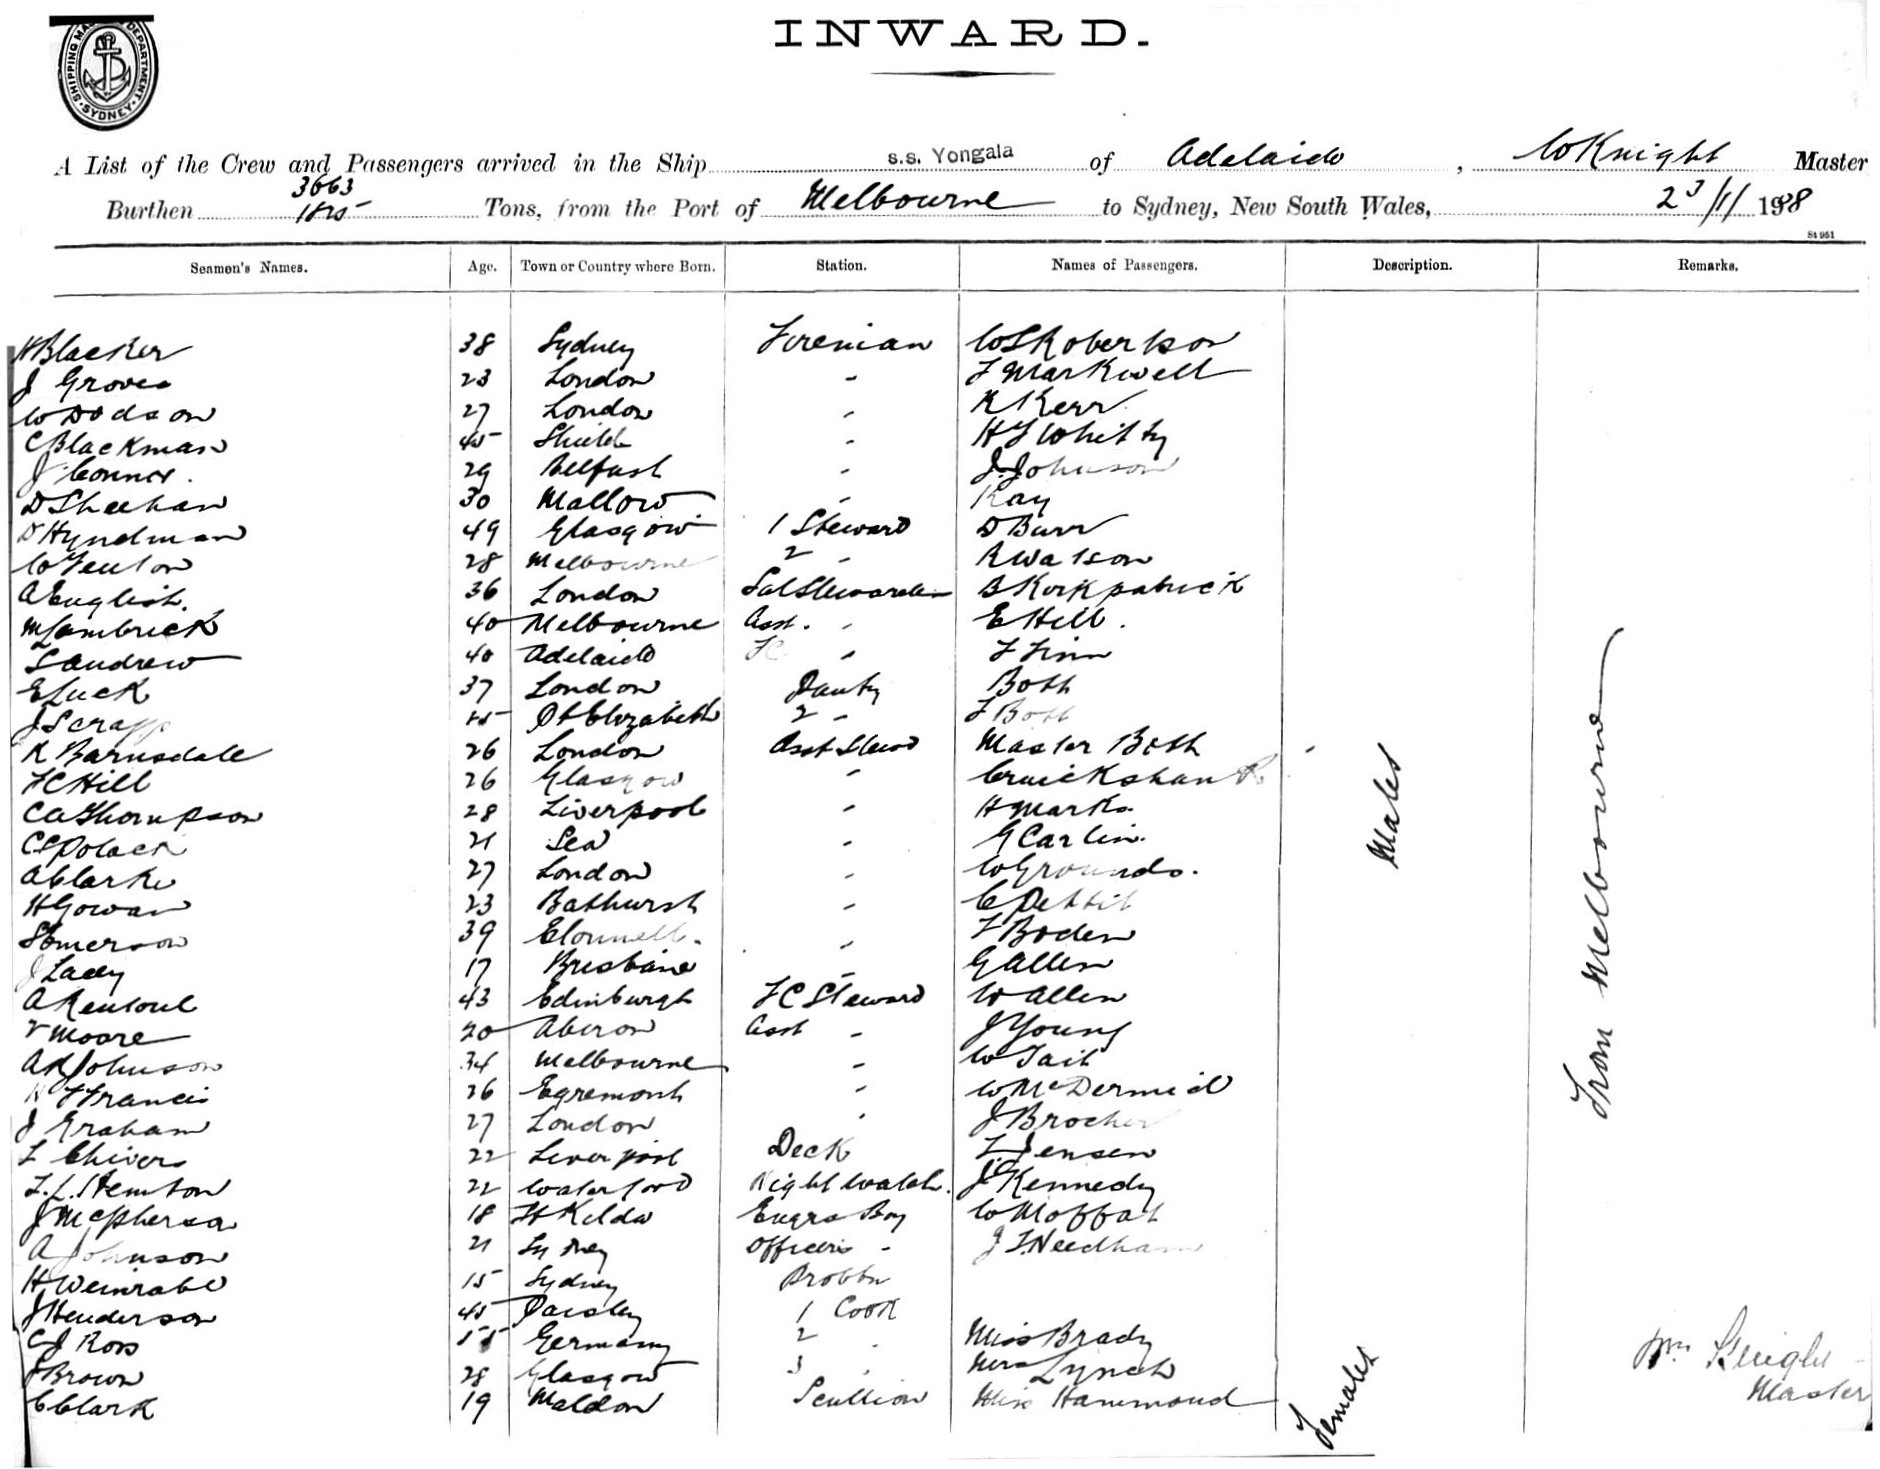 SHIPPING MASTER'S DEPARTMENT SYDNEY
INWARD.
A List of the Crew and Passengers arrived in the Ship s.s. Yongala of Adelaide, W Knight Master
Burthen 3663 1825 Tons, from the Port of Melbourne to Sydney, New South Wales, 23/11/1908
St 951
Seamen's Names. Age. Town or Country where Born. Station. Names of Passengers. Description. Remarks.
H Blacker 38 Sydney Fireman W S Robertson
J Groves 23 London " F Markwell
W Dodson 27 London " R Kerr
C Blackman 45 Shields " H F Whitty
J Connor. 29 Belfast " J. Johnson
D Sheehan 30 Mallow " Kay
D Hyndman 49 Glasgow 1 Steward D Burr
W Fenton 28 Melbourne 2 " R Watson
A English. 36 London Sal Stewardess B Kirkpatrick
M Lambrick 40 Melbourne Asst. " E Hill.
S Andrew 40 Adelaide FC " F Finn
E Luck 37 London Pantry Both
J Scrapp 25 Pt Elizabeth 2 " F Both
R Barnsdale 26 London Asst Stewd Master Both
F C Hill 26 Glasgow " Cruickshank
C A Thompson 28 Liverpool " H Marks.
C S Polack 21 Sea " G Carlin.
A Clarke 27 London " W Grounds.
H Gowan 23 Bathurst " C Pettit
S Emerson 39 " F Boden
J Lacey 17 Brisbane " G Allen
A Rentoul 43 Edinburgh FC Steward W Allen
V Moore 20 Asst " J Young
A R Johnson 34 Melbourne " W Tait
R F Francis 26 Egremont " W McDermid
J Graham 27 London " J Brocher
L Chivers 22 Liverpool Deck F. Jensen
F. L. Hemton 22 Waterford Night Watch. J Kennedy
J McPherson 18 St Kilda Engrs Boy W Moffat
A Johnson 21 Sydney Officers " J F Needham
H Weinrabe 15 Sydney
J Henderson 45 Paisley 1 Cook
C J Ross 55 Germany 2 " Miss Brady
J Brown 28 Glasgow 3 " Mrs Lynch
C Clark 19 Maldon Scullion Miss Hammond
Males
Females
From Melbourne
Wm Knight
Master